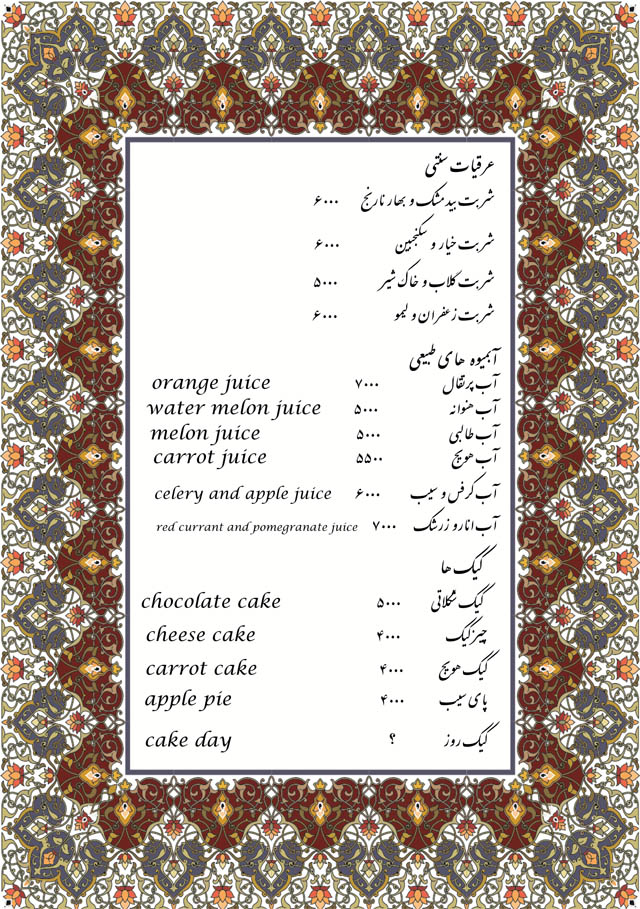 عرقیات سنتی
شربت بیدمشک و بهار نارنج ۶۰۰۰
شربت خیار و سکنجبین ۶۰۰۰
شربت گلاب و خاک شیر ۵۰۰۰
شربت زعفران و لیمو ۶۰۰۰
آبمیوه های طبیعی
آب پرتقال ۷۰۰۰ orange juice
آب هنوانه ۵۰۰۰ water melon juice
آب طالبی ۵۰۰۰ melon juice
آب هویج ۵۵۰۰ carrot juice
آب کرفس و سیب ۶۰۰۰ celery and apple juice
آب انار و زرشک ۷۰۰۰ red currant and pomegranate juice
کیک ها
کیک شکلاتی ۵۰۰۰ chocolate cake
چیزکیک ۴۰۰۰ cheese cake
کیک هویج ۴۰۰۰ carrot cake
پای سیب ۴۰۰۰ apple pie
کیک روز ؟ cake day